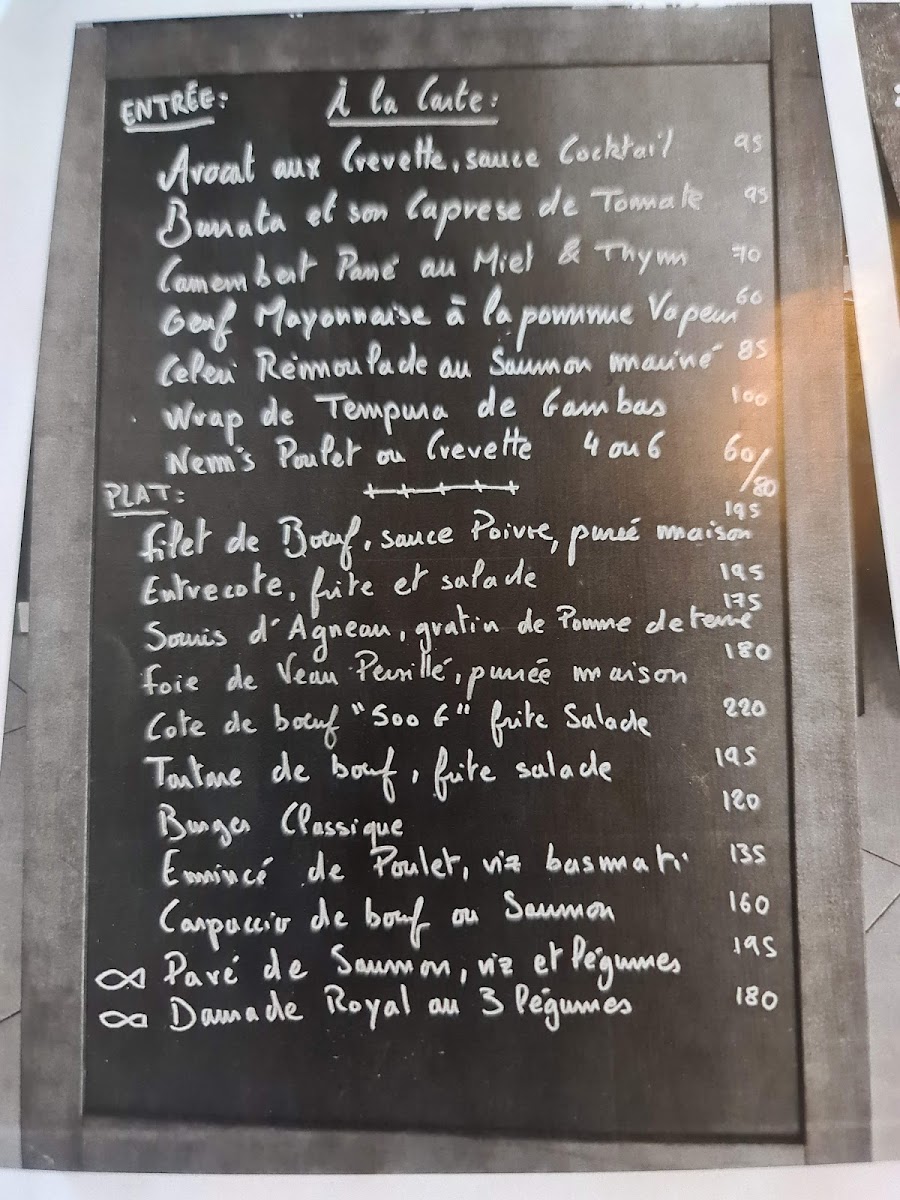 ENTRÉE: À la Carte:
Avocat aux Crevette, sauce Cocktail 95
Burrata et son Caprese de Tomate 95
Camembert Pané au Miel & Thym 70
Oeuf Mayonnaise à la pomme Vapeur 60
Celeri Rémoulade au Saumon mariné 85
Wrap de Tempura de Gambas 100
Nem's Poulet ou Crevette 4 ou 6 60/80
PLAT:
filet de Bœuf, sauce Poivre, purée maison 195
Entrecote, frite et salade 195
Souris d'Agneau, gratin de Pomme de terre 175
foie de Veau Persillé, purée maison 180
Cote de bœuf "500 G" frite Salade 220
Tartare de bœuf, frite salade 195
Burger Classique 120
Emincé de Poulet, riz basmati 135
Carpaccio de bœuf ou Saumon 160
Pavé de Saumon, riz et légumes 195
Daurade Royal au 3 légumes 180